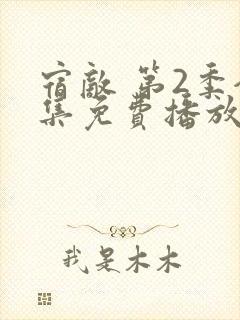 宿敵 第2季
集免費播放
我是木木